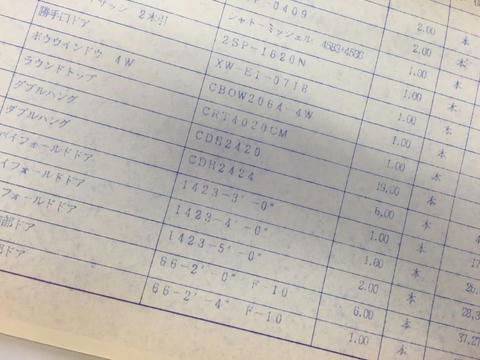 -0409 2.00 本
シャトーミッシェル 2.00 本
サッシ 2本引 2SP-1620N 1.00 本
勝手口ドア XW-E1-0718 1.00 本
ボウウインドウ 4W CBOW2064-4W 1.00 本
ラウンドトップ CRT4020CM 1.00 本
ダブルハング CDH2420 19.00 本
ダブルハング CDH2424 6.00 本
バイフォールドドア 1423-3'-0" 1.00 本
イフォールドドア 1423-4'-0" 1.00 本
フォールドドア 1423-5'-0" 2.00 本
部ドア 66-2'-0" F-10 6.00 本
ドア 66-2'-4" F-10 1.00 本